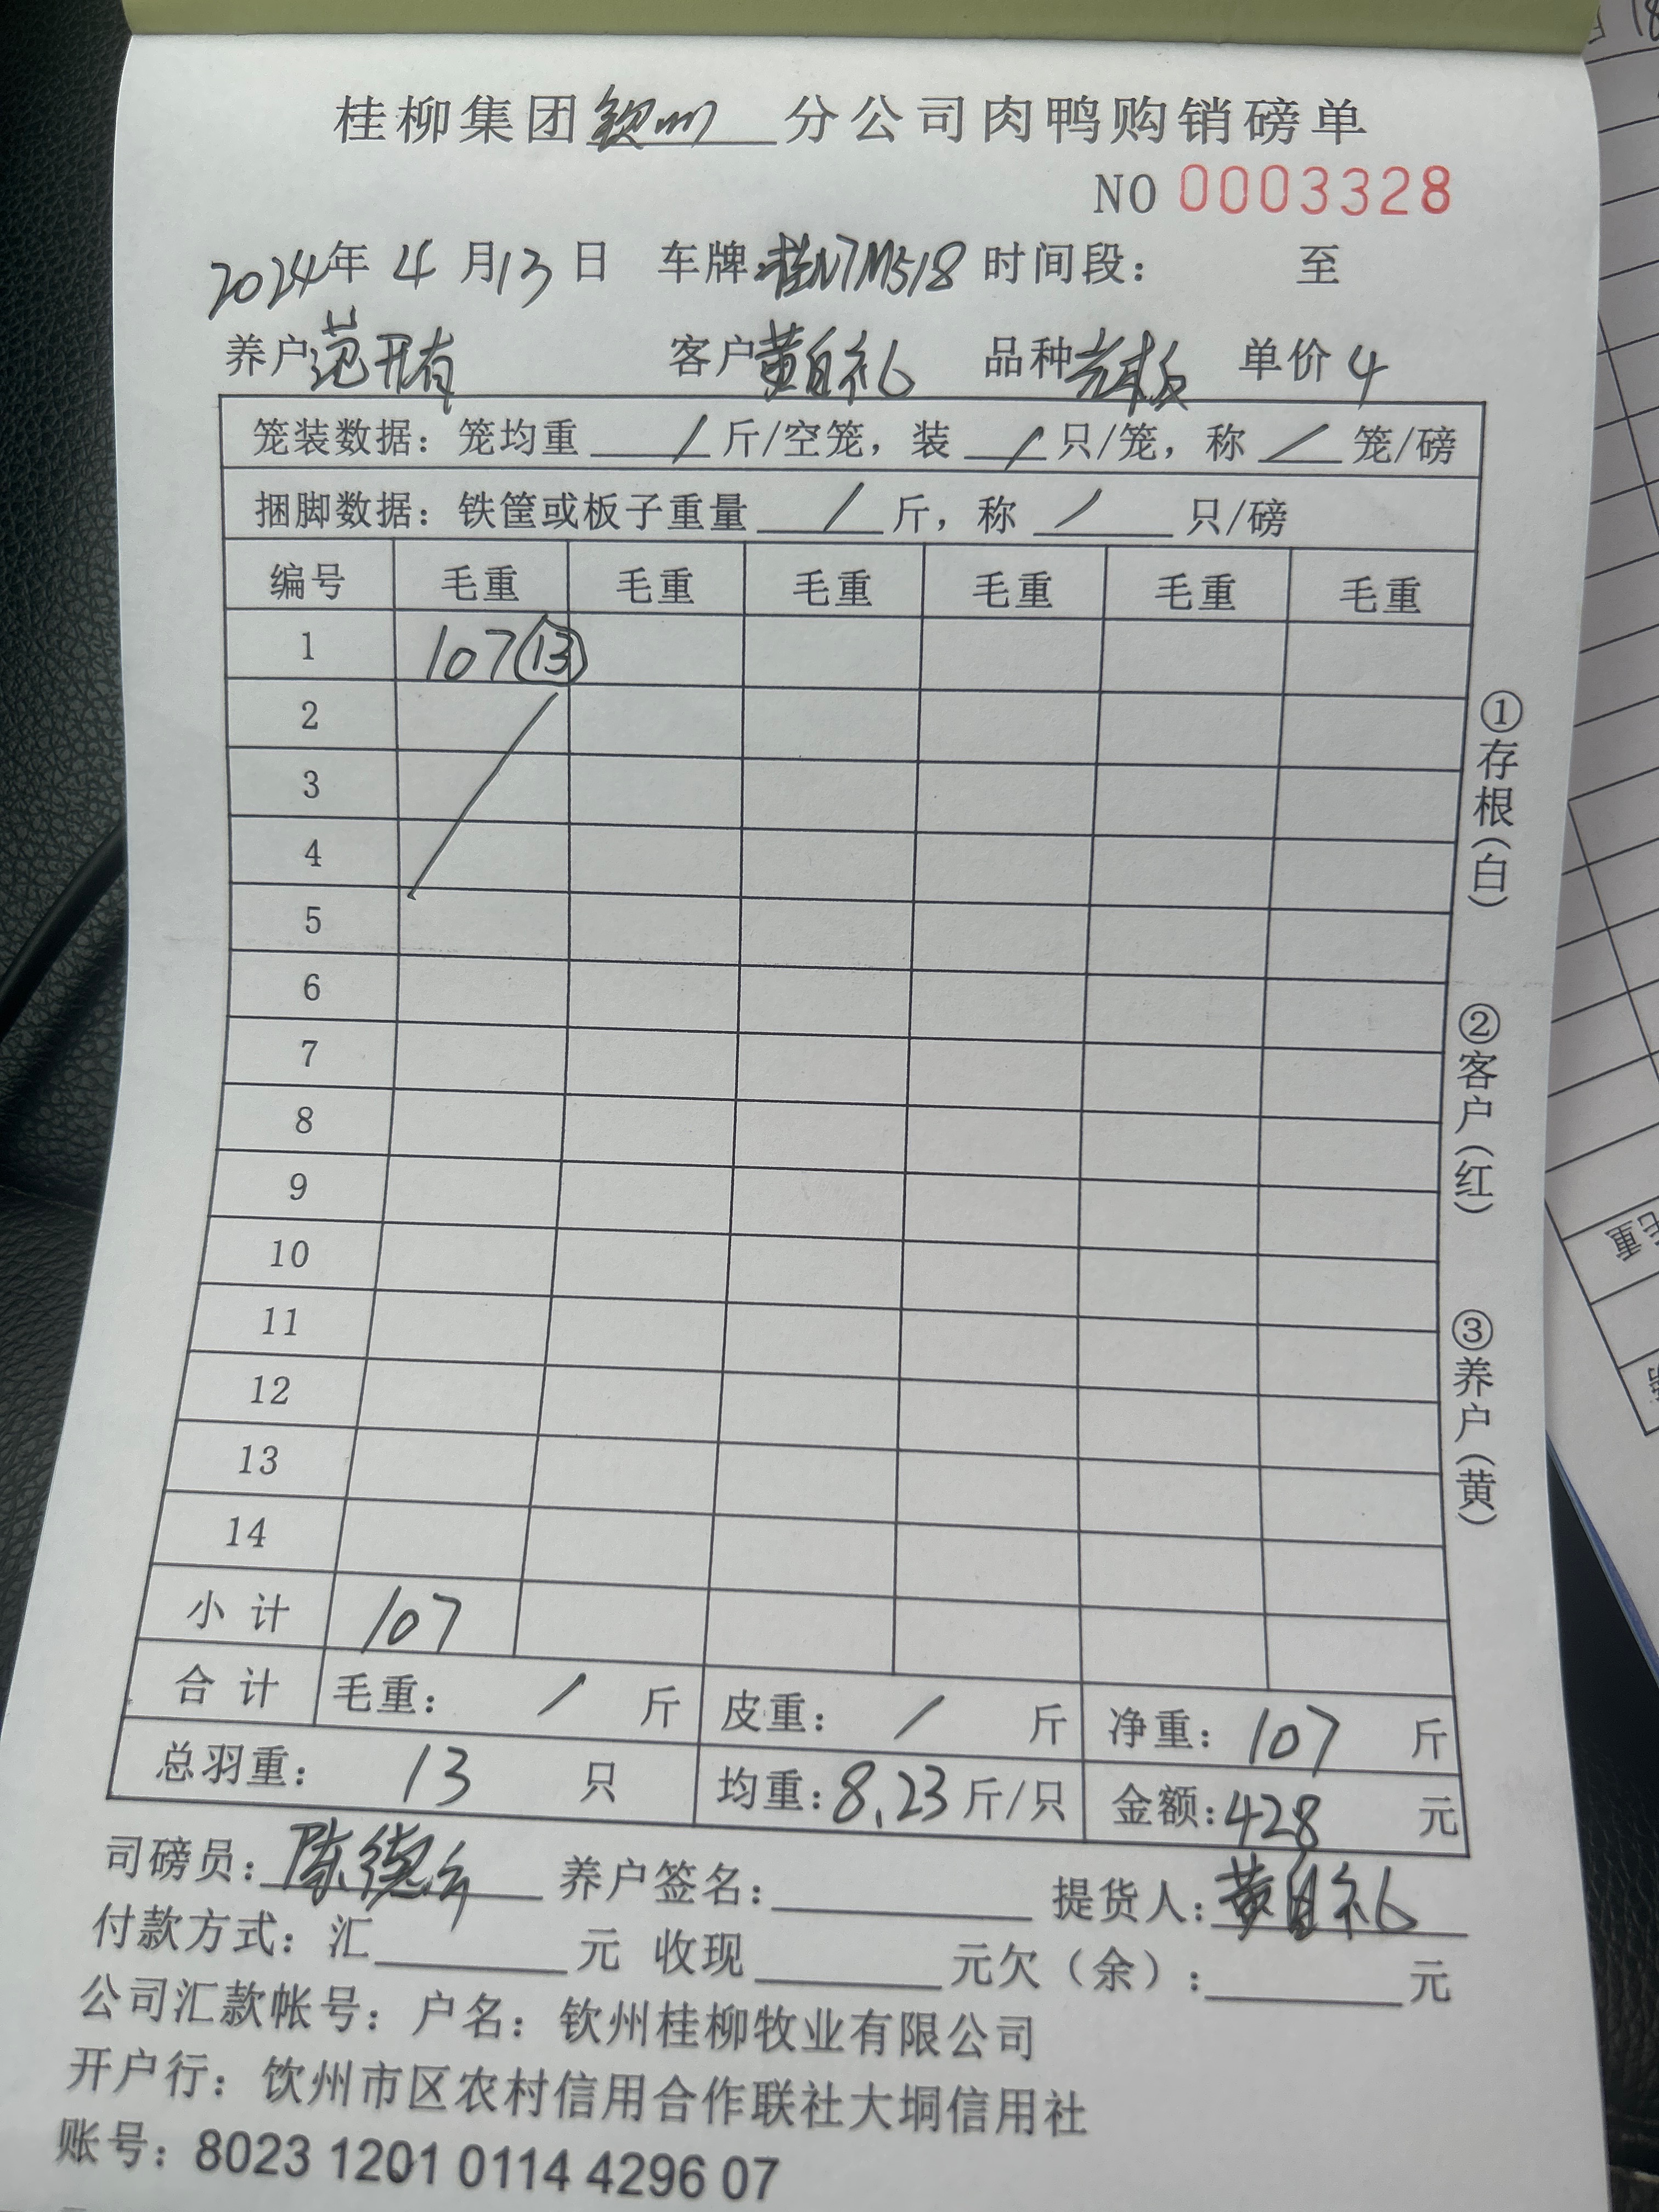 桂柳集团 钦州 分公司肉鸭购销磅单
NO 0003328
2024年 4 月 13 日 车牌 桂N7M518 时间段： 至
养户 范开有 客户 黄自礼 品种 光板 单价 4
笼装数据：笼均重 / 斤/空笼，装 / 只/笼，称 / 笼/磅
捆脚数据：铁筐或板子重量 / 斤，称 / 只/磅
编号 毛重 毛重 毛重 毛重 毛重 毛重
1 107 (13)
2
3
4
5
6
7
8
9
10
11
12
13
14
小计 107
合计 毛重： / 斤 皮重： / 斤 净重：107 斤
总羽重： 13 只 均重：8.23 斤/只 金额：428 元
司磅员：陈德 养户签名： 提货人：黄自礼
付款方式：汇 元 收现 元欠（余）： 元
公司汇款帐号：户名：钦州桂柳牧业有限公司
开户行：饮州市区农村信用合作联社大垌信用社
账号：8023 1201 0114 4296 07
①存根（白）
②客户（红）
③养户（黄）
毛重